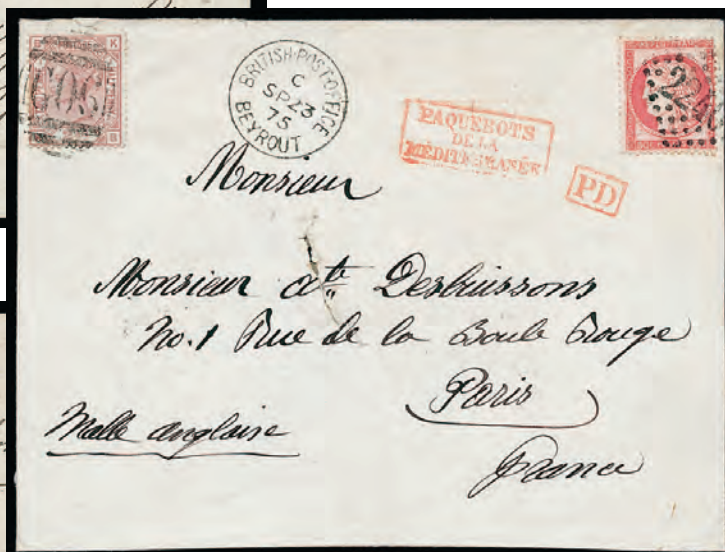 BRITISH·POST·OFFICE
C
SP 23
75
BEYROUT
G06
PAQUEBOTS
DE LA
MÉDITERRANÉE
PD
Monsieur
Monsieur Ate Desbuissons
No. 1 Rue de la Boule Rouge
Paris
Malle anglaise
France